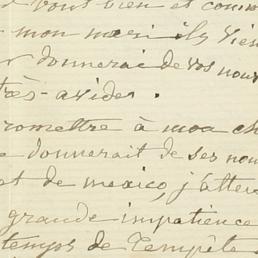 vous bien et comm
mon mari ils vien
donnerai de vos nouv
très-avides.
romettre à mon ch
donnerait de ses nou
t de mexico, j'atten
grande impatience
temps de tempête